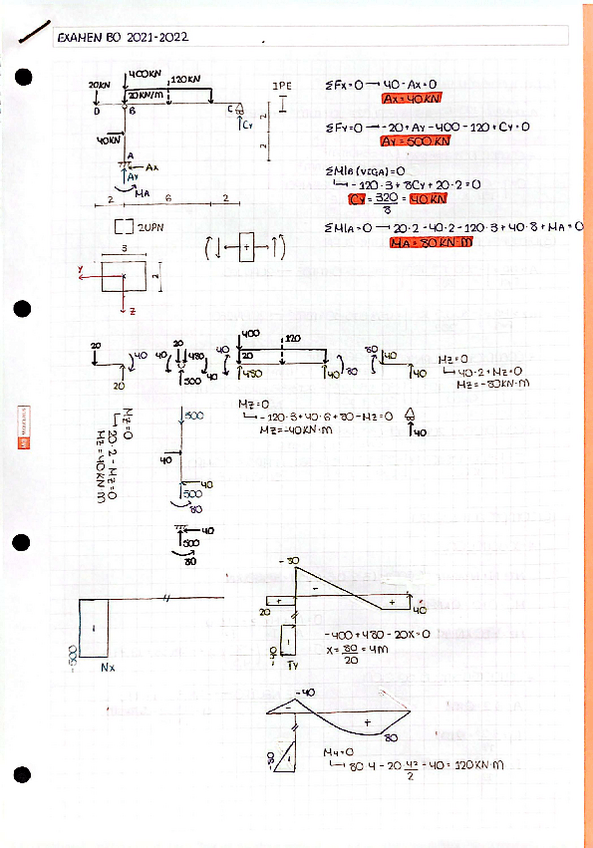 EXAMEN BO 2021-2022
400KN
20KN
120KN
20KN/m
IPE
D
B
C
Cy
2
2
40KN
A
Ax
Ay
MA
2
6
2
2UPN
3
2
Y
Z
ΣFx=0 → 40-Ax=0
Ax=40KN
ΣFy=0 → -20+Ay-400-120+Cy=0
Ay=500KN
ΣM|B (VIGA)=0
↳ -120·3+8Cy+20·2=0
Cy = 320/8 = 40KN
ΣM|A=0 → 20·2-40·2-120·3+40·8+MA=0
MA=80KN·m
20
40
20
40
20
480
40
40
500
400
120
40
20
480
40
80
80
40
40
Mz=0
↳ 40·2+Mz=0
Mz=-80KN·m
Mz=0
↳ -120·3+40·6+80-Mz=0
Mz=-40KN·m
40
Mz=0
↳ 20·2-Mz=0
Mz=40KN·m
500
40
40
500
80
40
500
80
-500
Nx
-80
20
40
-
+
-40
Ty
-400+480-20x=0
x = 80/20 = 4m
-40
-
+
80
-80
My=0
↳ 80·4-20 4²/2 -40=120KN·m